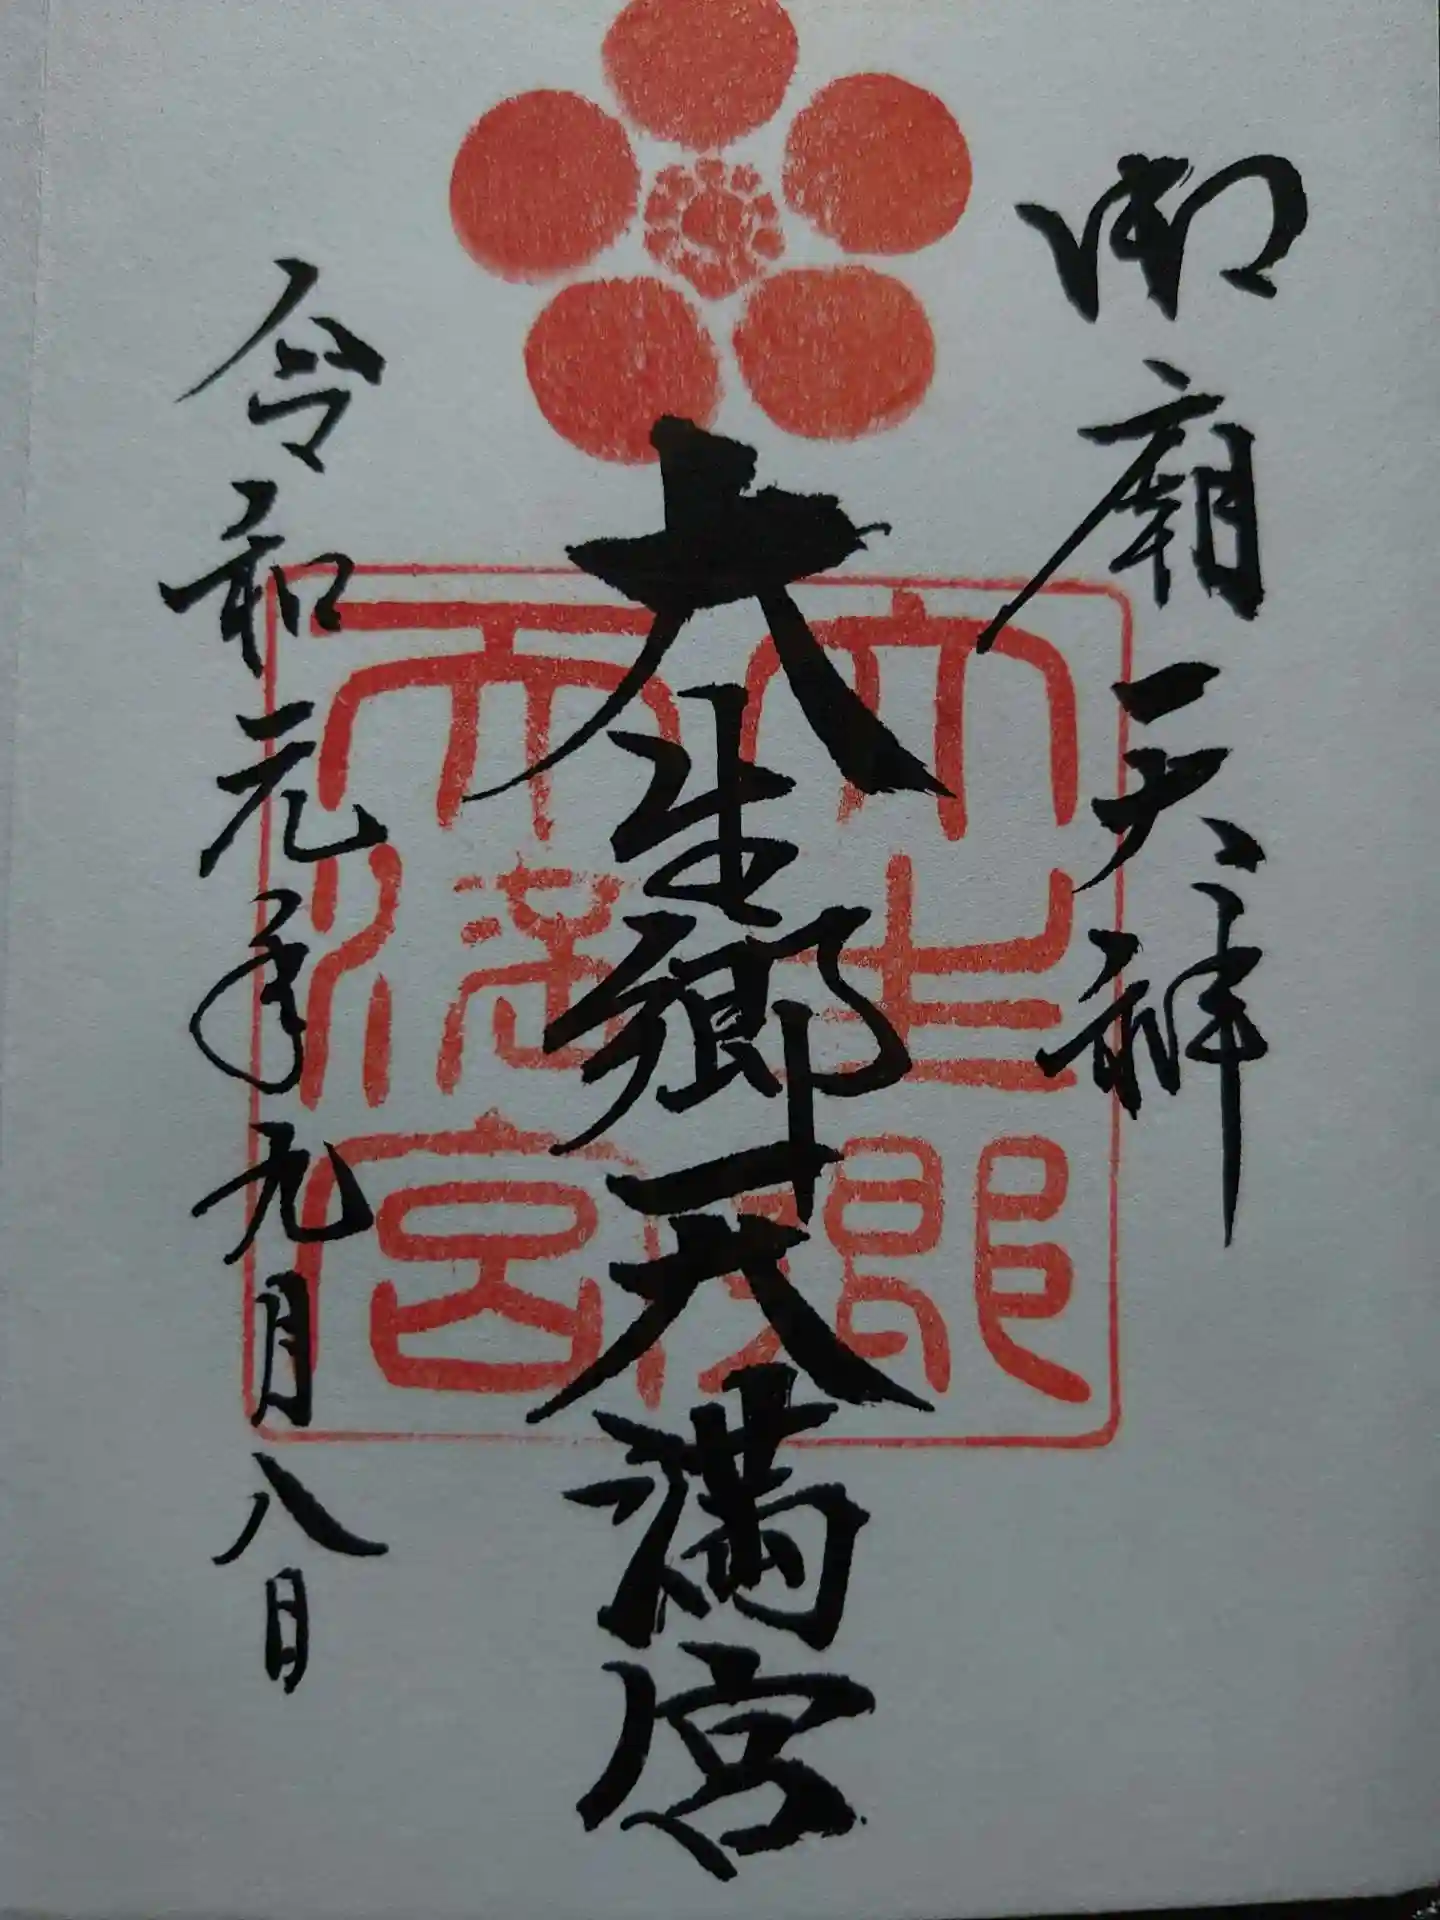 御廟天神
大生郷天満宮
令和元年九月八日
大生郷
天満宮